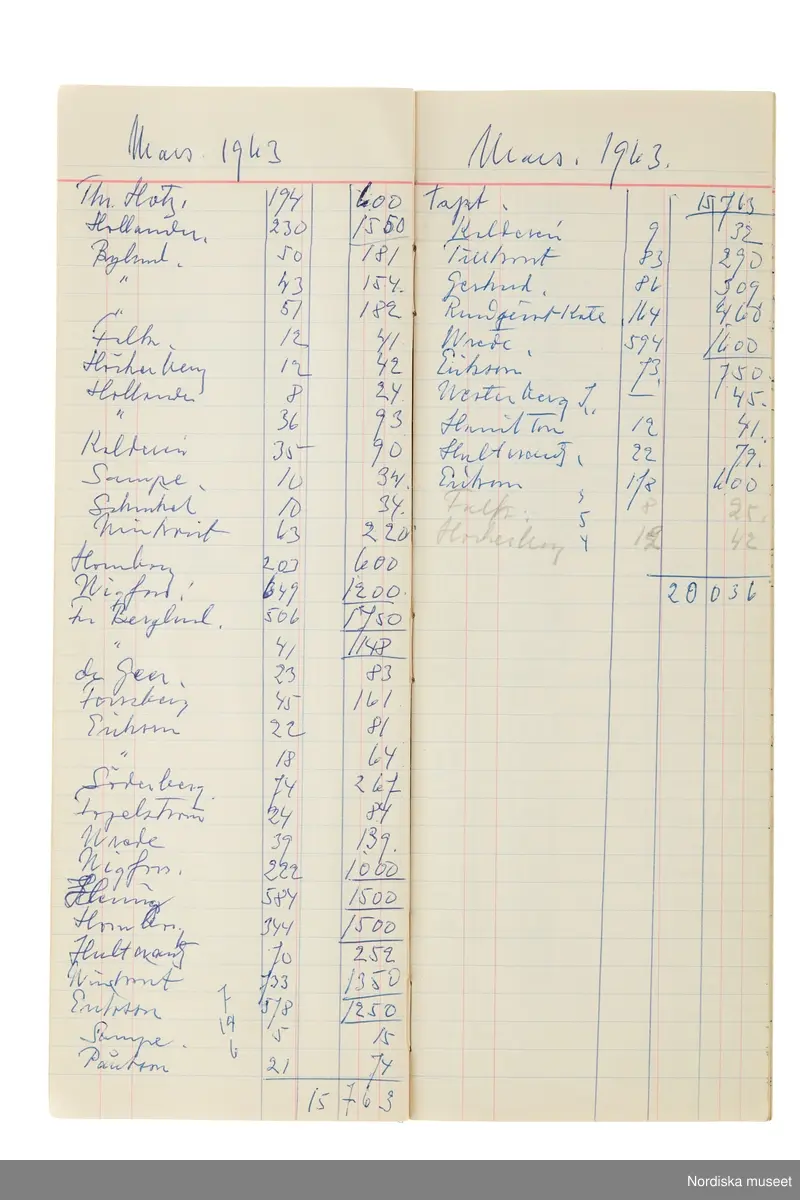 Mars. 1943
Th. Hotz. 194 600
Hollander. 230 1550
Bylund. 50 181
" 43 154.
" 51 182
Falk. 12 41
Höckerberg 12 42
Hollander 8 24
" 36 93
Kalderén 35 90
Sampe. 10 34.
Schinkel 10 34.
63 220
Homberg 203 600
Wigfors. 349 1200.
Fr Berglund. 506 1750
" 41 1148
de Geer. 23 83
Forssberg 45 161
Erikson 22 81
" 18 64
Söderberg. 74 267
24 84
Wrede 39 139.
Wigfors. 222 1000
584 1500
Homberg 344 1500
Hultkrantz 70 252
733 1350
Erikson 7 578 1250
Sampe. 14 5 15
Paulson 6 21 74
15 763
Mars. 1943.
Tapt. 15763
Kalderén 9 32
83 290
Gestrud. 86 309
Rundqvist Kate 164 460
Wrede. 594 1600
Erikson 73 750.
Westerberg J. — 45.
Hamilton 12 41.
Hultkrantz. 22 79.
Erikson 178 600
Falk. 5 8 25.
Höckerberg 4 12 42
20 036
Nordiska museet